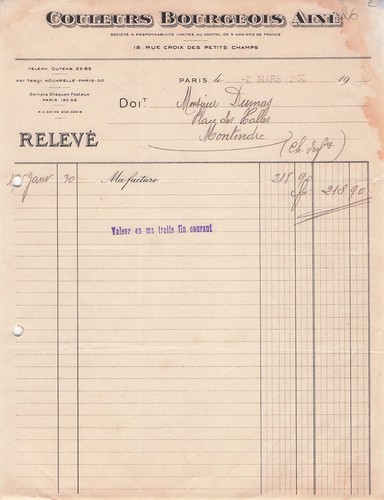 COULEURS BOURGEOIS AINÉ
SOCIÉTÉ A RESPONSABILITÉ LIMITÉE AU CAPITAL DE 5.000.000 DE FRANCS
18, RUE CROIX DES PETITS CHAMPS
TÉLÉPH. GUTENB. 29-95
Adr. Télégr. AQUARELLE-PARIS-OO
Compte Chèques Postaux
PARIS 190-58
PARIS, le MARS 19
DOIT Monsieur Dumas
Place des Halles
Montendre
(Ch. Infre)
RELEVÉ
Janv 30 Ma facture 218 90
218 90
Valeur en ma traite fin courant